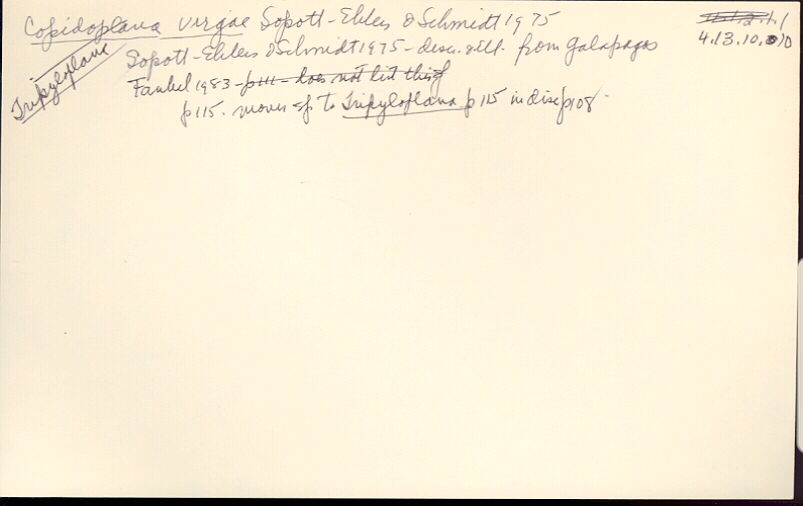 Copidoplana virgae Sopott-Ehlers & Schmidt 1975
4.13.10.010
Tripyloplana
Sopott-Ehlers & Schmidt 1975 - desc. & ill. from Galapagos
Faubel 1983 - p111 - does not list this sp
p115. moves sp to Tripyloplana p115 in disc p108.